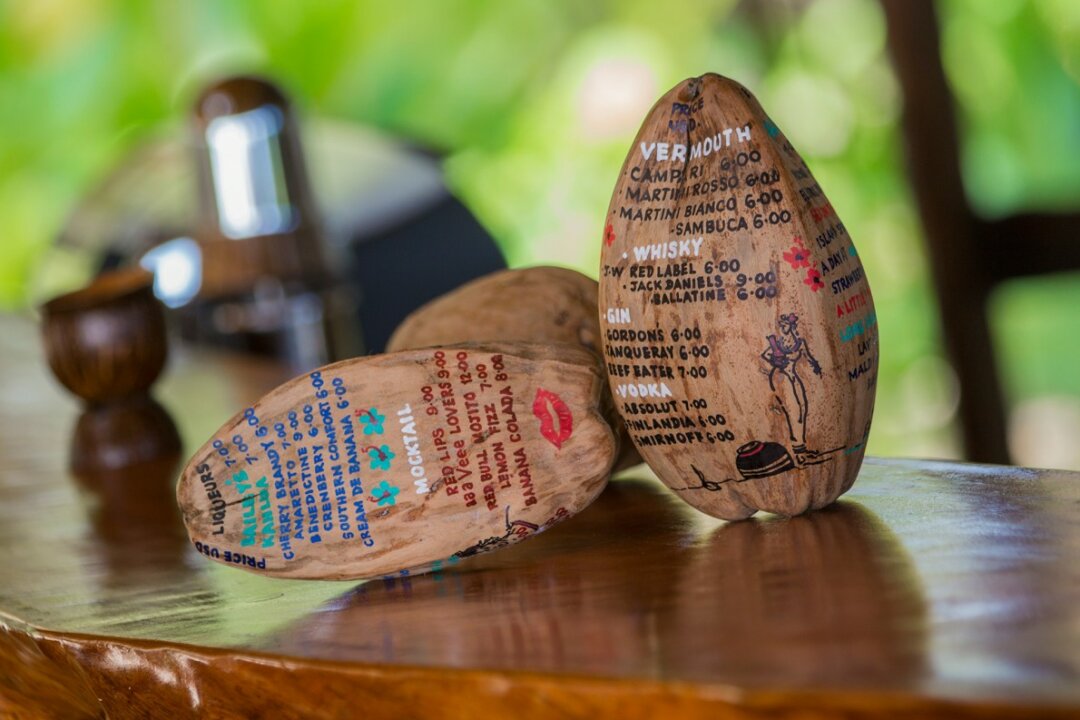 PRICE
VERMOUTH
CAMPARI 6·00
MARTINI ROSSO 6·00
·MARTINI BIANCO 6·00
·SAMBUCA 6·00
·WHISKY
RED LABEL 6·00
·JACK DANIELS 9·00
·BALLATINE 6·00
·GIN
GORDONS 6·00
TANQUERAY 6·00
BEEF EATER 7·00
·VODKA
ABSOLUT 7·00
FINLANDIA 6·00
SMIRNOFF 6·00
ISLAND
A DAY
STRAWBERRY
A LITTLE
PRICE USD
LIQUEURS
CHERRY BRANDY 7·00
AMARETTO 9·00
BENEDICTINE 6·00
CRENBERRY 6·00
SOUTHERN COMFORT 6·00
CREAM DE BANANA 6·00
MOCKTAIL
RED LIPS 9·00
LOVERS 9·00
MOJITO 12·00
RED BULL
LEMON FIZZ 7·00
BANANA COLADA 8·00